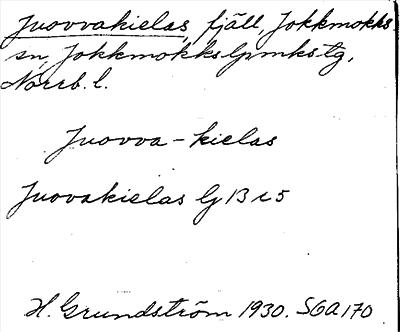 Juovvakielas, fjäll, Jokkmokks
sn, Jokkmokks lpmkstg,
Norrb. l.
Juovva-kielas
Juovakielas lj 13 r 5
H. Grundström 1930. SGA 170